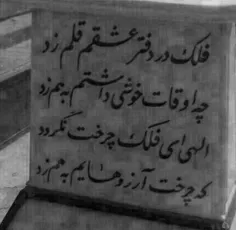 فلک در دفتر عشقم قلم زد
چه اوقات خوشی داشتم بهم زد
الهی ای فلک چرخت نگردد
که چرخت آرزوهایم بهم زد